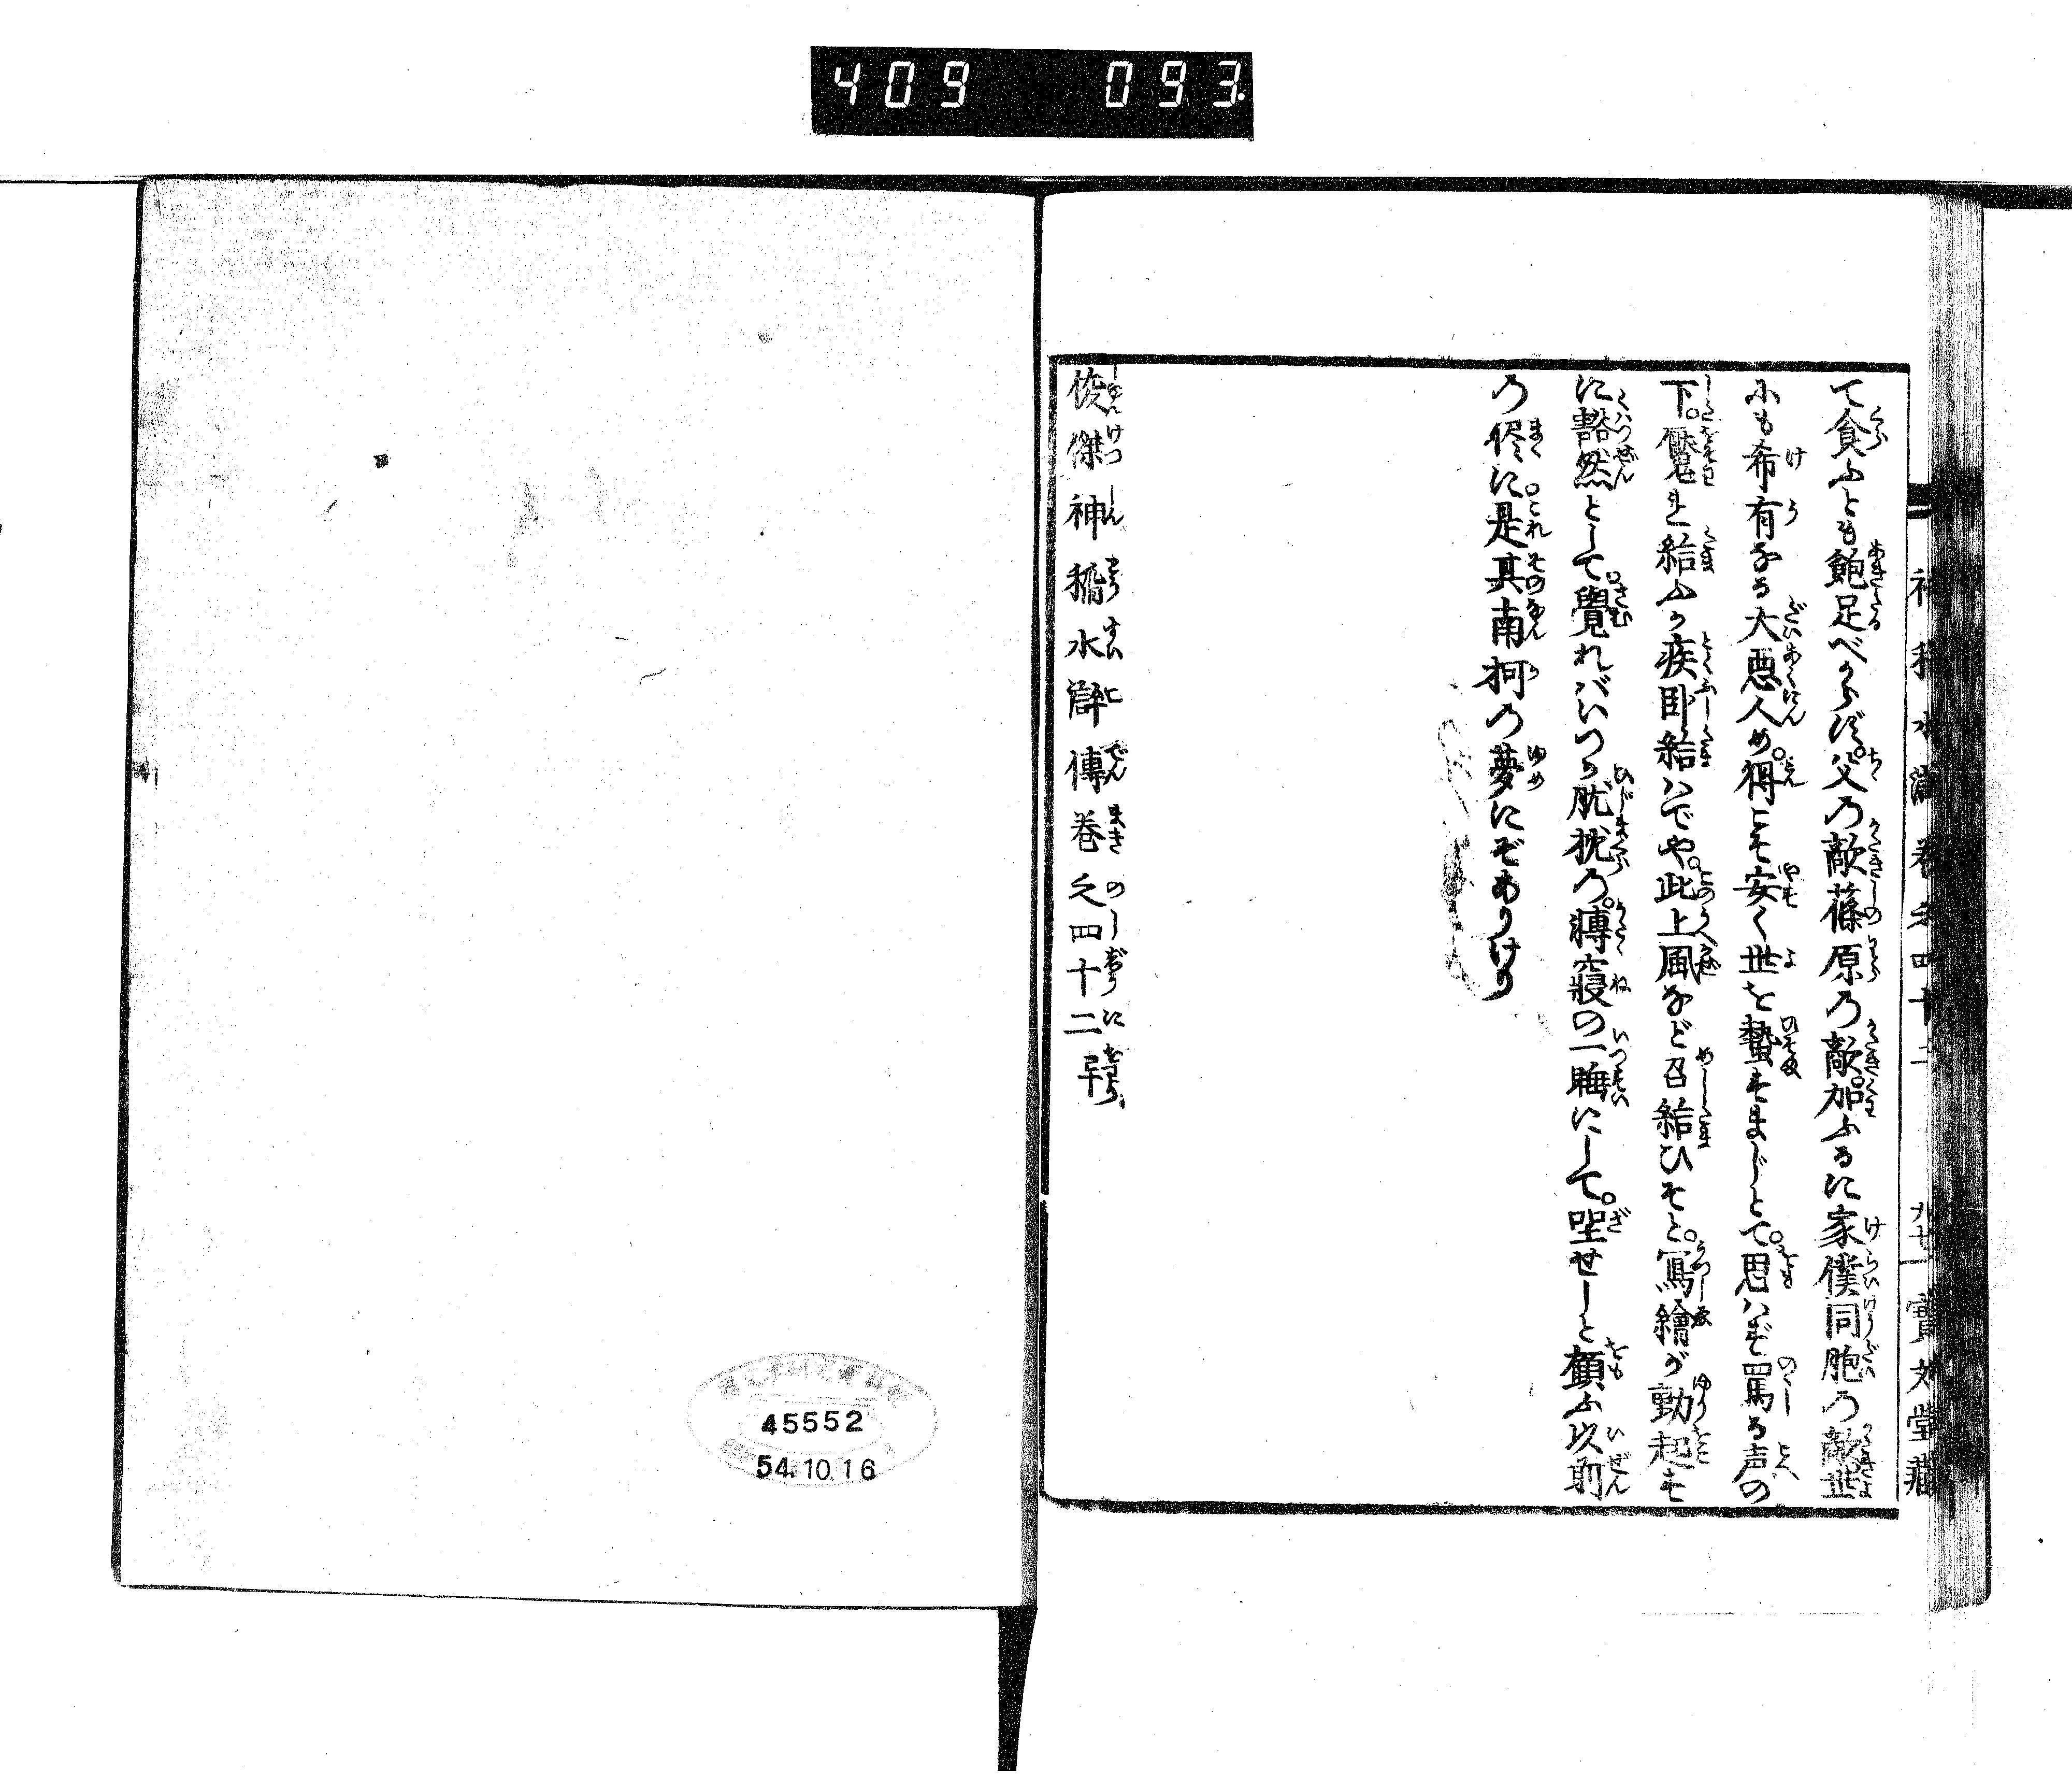 409 093.
て貪ふとも飽足べからず。父の敵篠原の敵。加ふるに家僕同胞の敵世
にも希有なる大悪人め。得こそ安く世を蟄させまじとて。思はず罵る声の
下。魘れ給ふか疾臥給はでや。此上風など召給ひそと。寫繪が動起す
に豁然として覺ればいつか肱枕の。轉寝の一睡にして。坐せしと顧ふ以前
の儘に是其南柯の夢にぞありけり
俊傑神稲水滸傳巻之四十二 尾
神稲水滸巻之四十二 廿一 寶文堂藏
45552
54.10.16